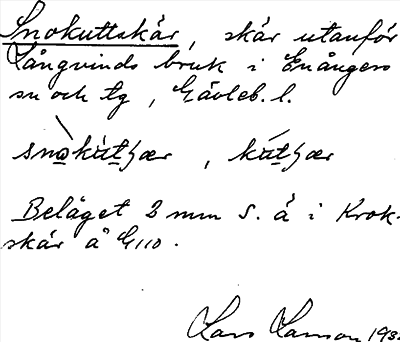 Snokuttskär, skär utanför
Långvinds bruk i Enångers
sn och tg, Gävleb. l.
Beläget 2 mm S. å i Krok-
skär å G110.
Lars Larsson 193